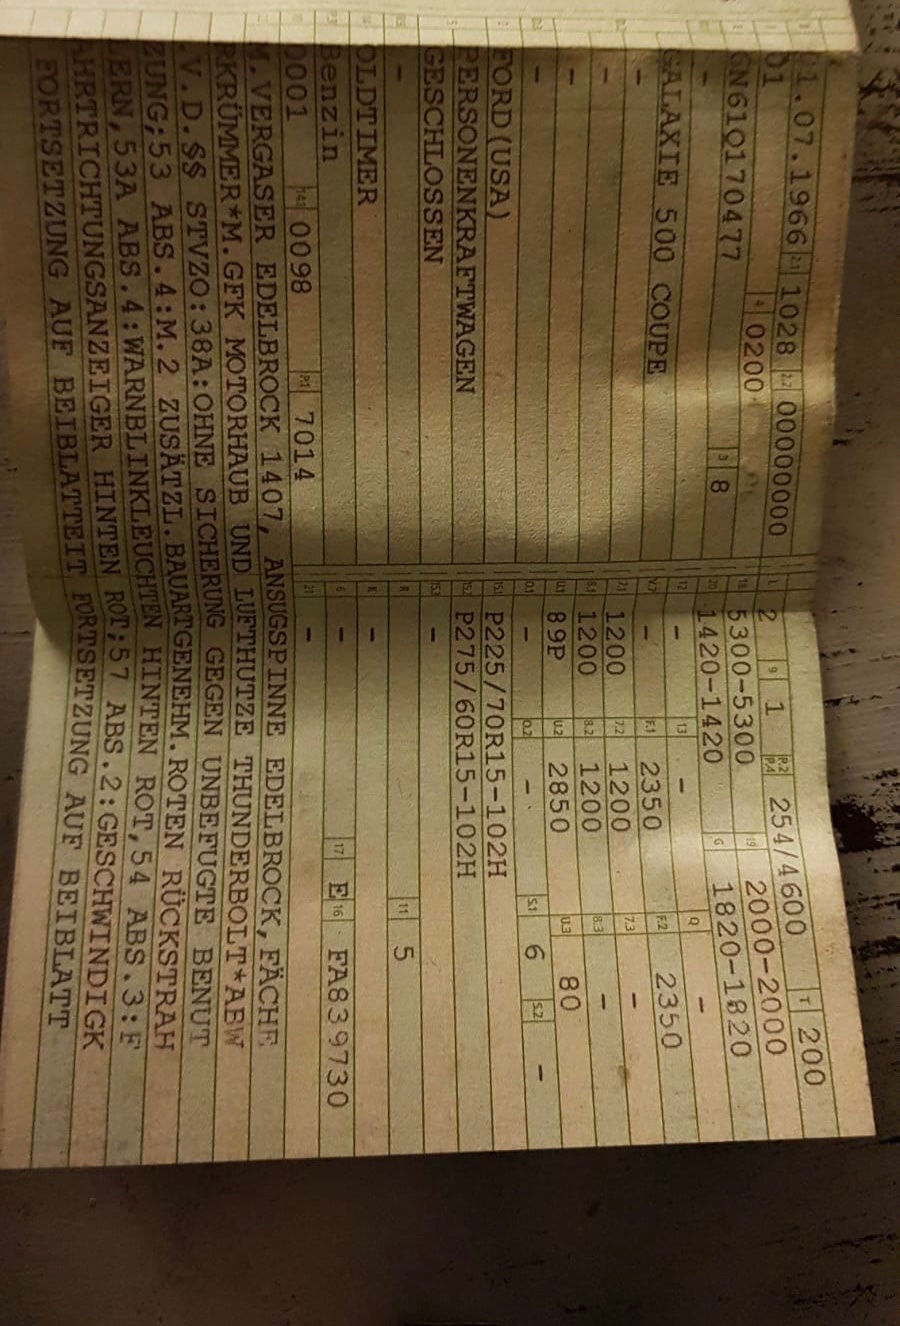 1.07.1966 2.1 1028 2.2 00000000 L 2 9 1 P.2 P.4 254/4600 T 200
01 4 0200 18 5300-5300 19 2000-2000
GN61Q170477 3 8 20 1420-1420 G 1820-1820
- 12 - 13 - Q -
GALAXIE 500 COUPE V.7 - F.1 2350 F.2 2350
- 7.1 1200 7.2 1200 7.3 -
- 8.1 1200 8.2 1200 8.3 -
- U.1 89P U.2 2850 U.3 80
- O.1 - O.2 - S.1 6 S.2 -
FORD (USA) 15.1 P225/70R15-102H
PERSONENKRAFTWAGEN 15.2 P275/60R15-102H
GESCHLOSSEN 15.3 -
- R 11 5
OLDTIMER K -
Benzin 6 - 17 E 16 FA839730
0001 14.1 0098 P.1 7014 21 -
M.VERGASER EDELBROCK 1407, ANSUGSPINNE EDELBROCK,FÄCHE
RKRÜMMER*M.GFK MOTORHAUB UND LUFTHUTZE THUNDERBOLT*AEW
.V.D.§§ STVZO:38A:OHNE SICHERUNG GEGEN UNBEFUGTE BENUT
ZUNG;53 ABS.4:M.2 ZUSÄTZL.BAUARTGENEHM.ROTEN RÜCKSTRAH
LERN,53A ABS.4:WARNBLINKLEUCHTEN HINTEN ROT,54 ABS.3:F
AHRTRICHTUNGSANZEIGER HINTEN ROT;57 ABS.2:GESCHWINDIGK
FORTSETZUNG AUF BEIBLATTEIT FORTSETZUNG AUF BEIBLATT